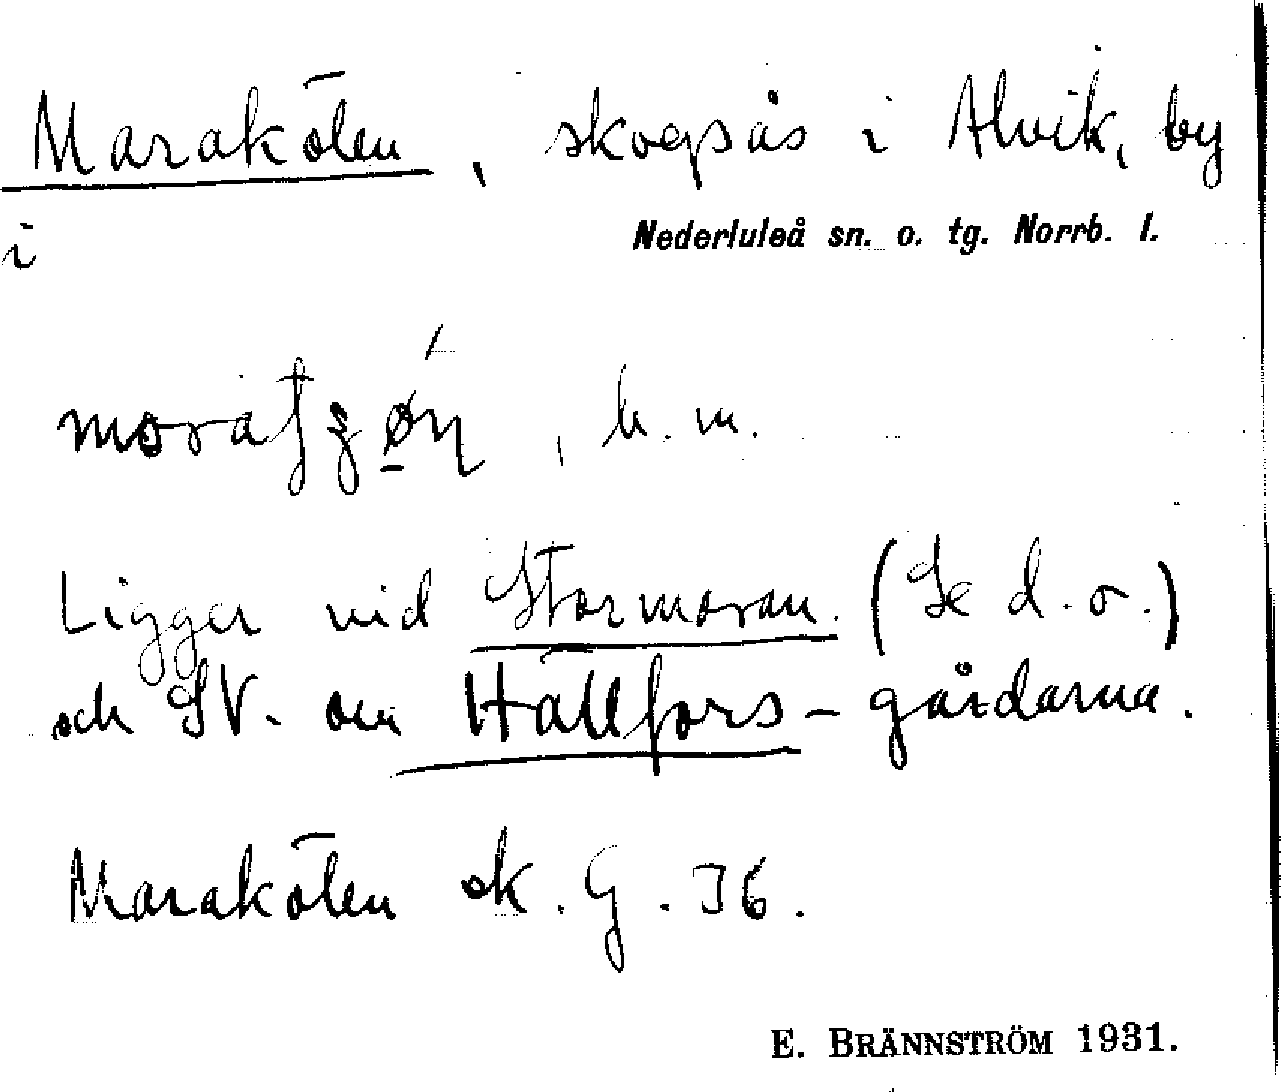 Maraкölen, skogsås i Alvik, by
i Nederluleå sn. o. tg. Norrb. l.
, b. m.
Ligger vid Stormoran. (Se d. o.)
och SV. om Hällfors-gårdarna.
Marakölen ek. G. 36.
E. BRÄNNSTRÖM 1931.